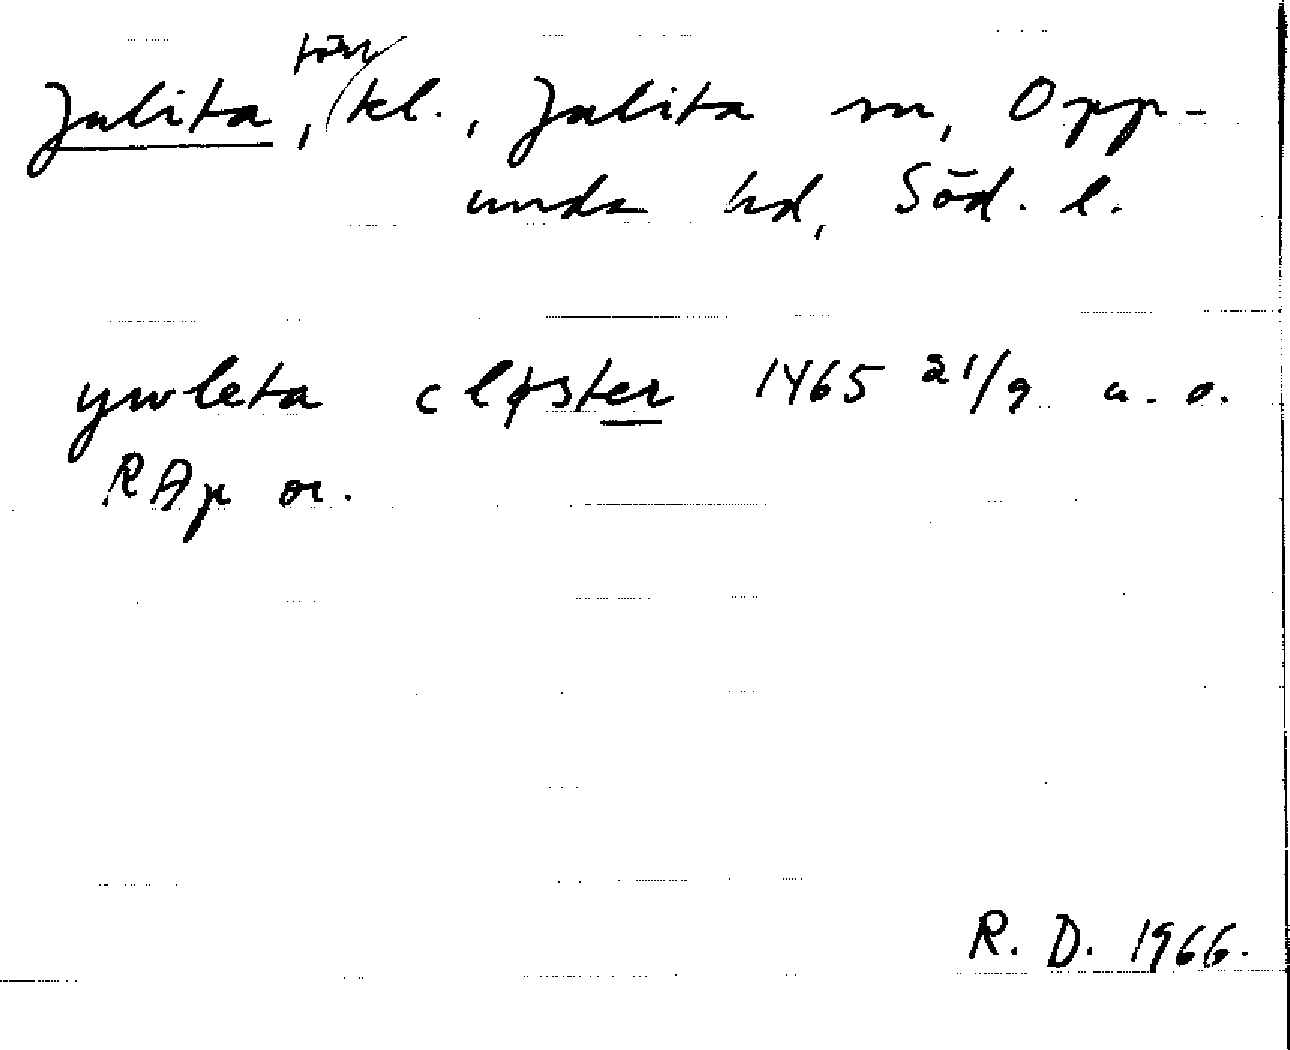 Julita, förr kl., Julita sn, Opp-
unda hd, Söd. l.
ywleta cløster 1465 21/9 u. o.
RAp or.
R. D. 1966.